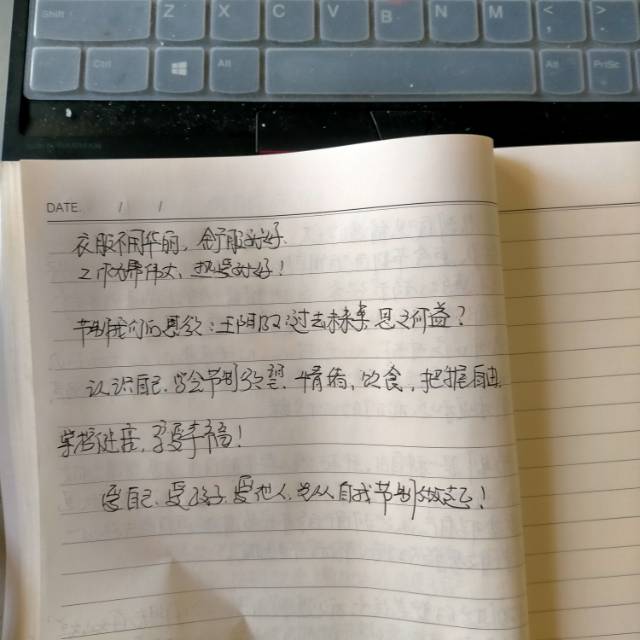 Shift Z X C V B N M < , > .
Ctrl Alt Alt PrtSc
DATE / /
衣服不用华丽，舒服就好.
工作不用伟大，热爱就好！
节制我们的思欲：王阳明：过去未来事思之何益？
认识自己.学会节制欲望.情绪，饮食，把握自由.
掌控进度，享受幸福！
爱自己.爱孩子.爱他人.先从自我节制做起！